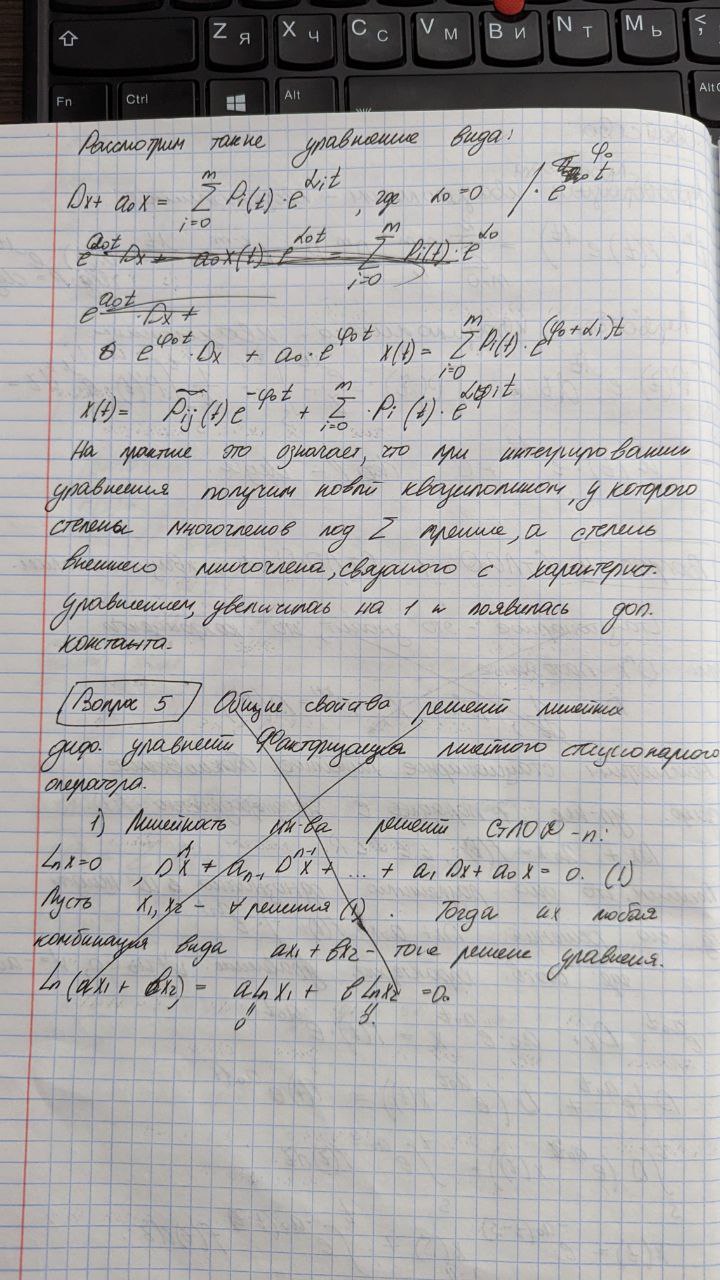 Z Я
X Ч
C С
V М
B И
N Т
M Ь
<
Fn
Ctrl
Alt
Рассмотрим также уравнение вида:
Dx + a₀x = Σ_{i=0}^{m} Pᵢ(t)·e^{αᵢt}, где α₀=0 /· e^{φ₀t}
e^{a₀t} Dx + a₀x(t)·e^{α₀t} = Σ_{i=0}^{m} Pᵢ(t)·e^{α₀}
e^{a₀t}·Dx +
e^{φ₀t}·Dx + a₀·e^{φ₀t} x(t) = Σ_{i=0}^{m} Pᵢ(t)·e^{(φ₀+αᵢ)t}
x(t) = P̃ᵢⱼ(t)e^{-φ₀t} + Σ_{i=0}^{m}·Pᵢ(t)·e^{αᵢt}
На практике это означает, что при интегрировании
уравнения получим новый квазиполином, у которого
степени многочленов под Σ прежние, а степень
внешнего многочлена, связаного с характерист.
уравнением, увеличилась на 1 и появилась доп.
константа.
Вопрос 5 Общие свойства решений линейных
диф. уравнений Факторизация линейного стационарного
оператора.
1) Линейность мн-ва решений СЛОУ-n:
Lnx=0, Dⁿx + aₙ₋₁Dⁿ⁻¹x + ... + a₁Dx + a₀x = 0. (1)
Пусть x₁, x₂ - ∀ решения (1). Тогда их любая
комбинация вида ax₁ + bx₂ - тоже решение уравнения.
Ln(ax₁ + bx₂) = aLnx₁ + bLnx₂ = 0.
0 0